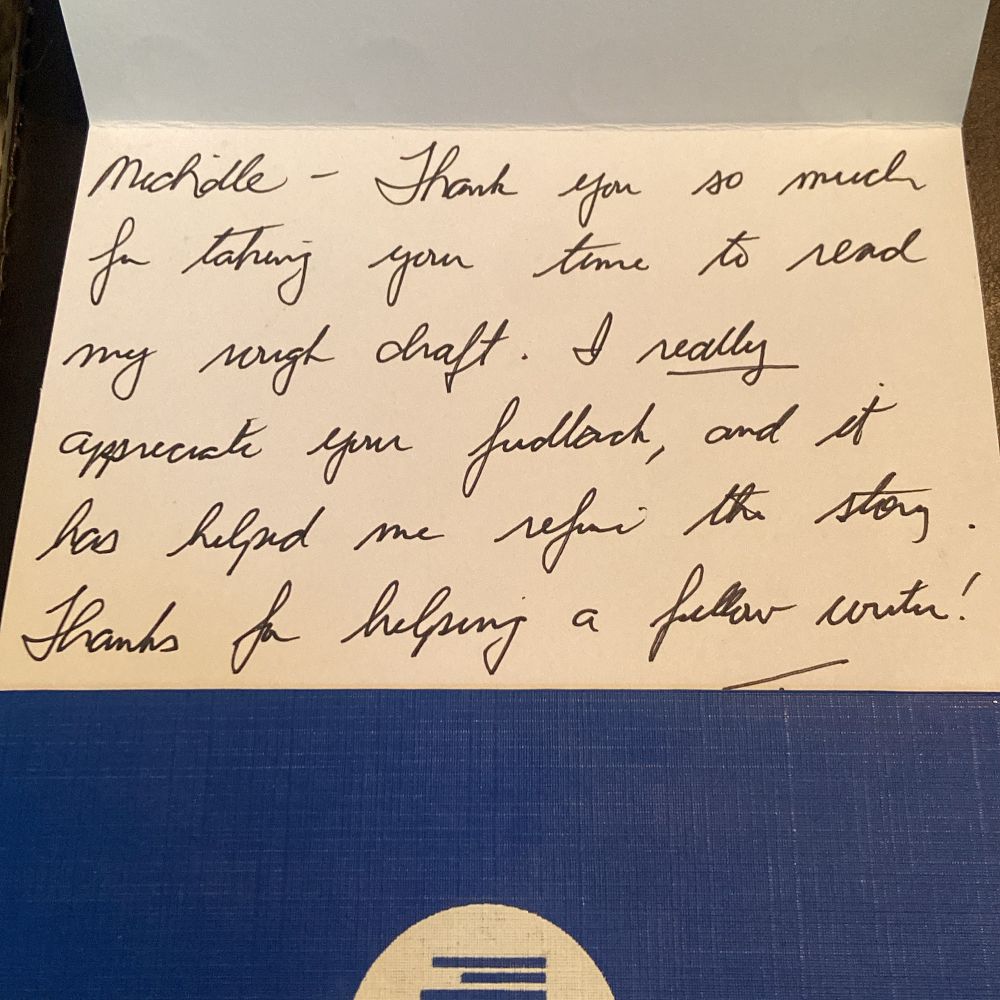 Michelle - Thank you so much
for taking your time to read
my rough draft. I really
appreciate your feedback, and it
has helped me refine the story.
Thanks for helping a fellow writer!